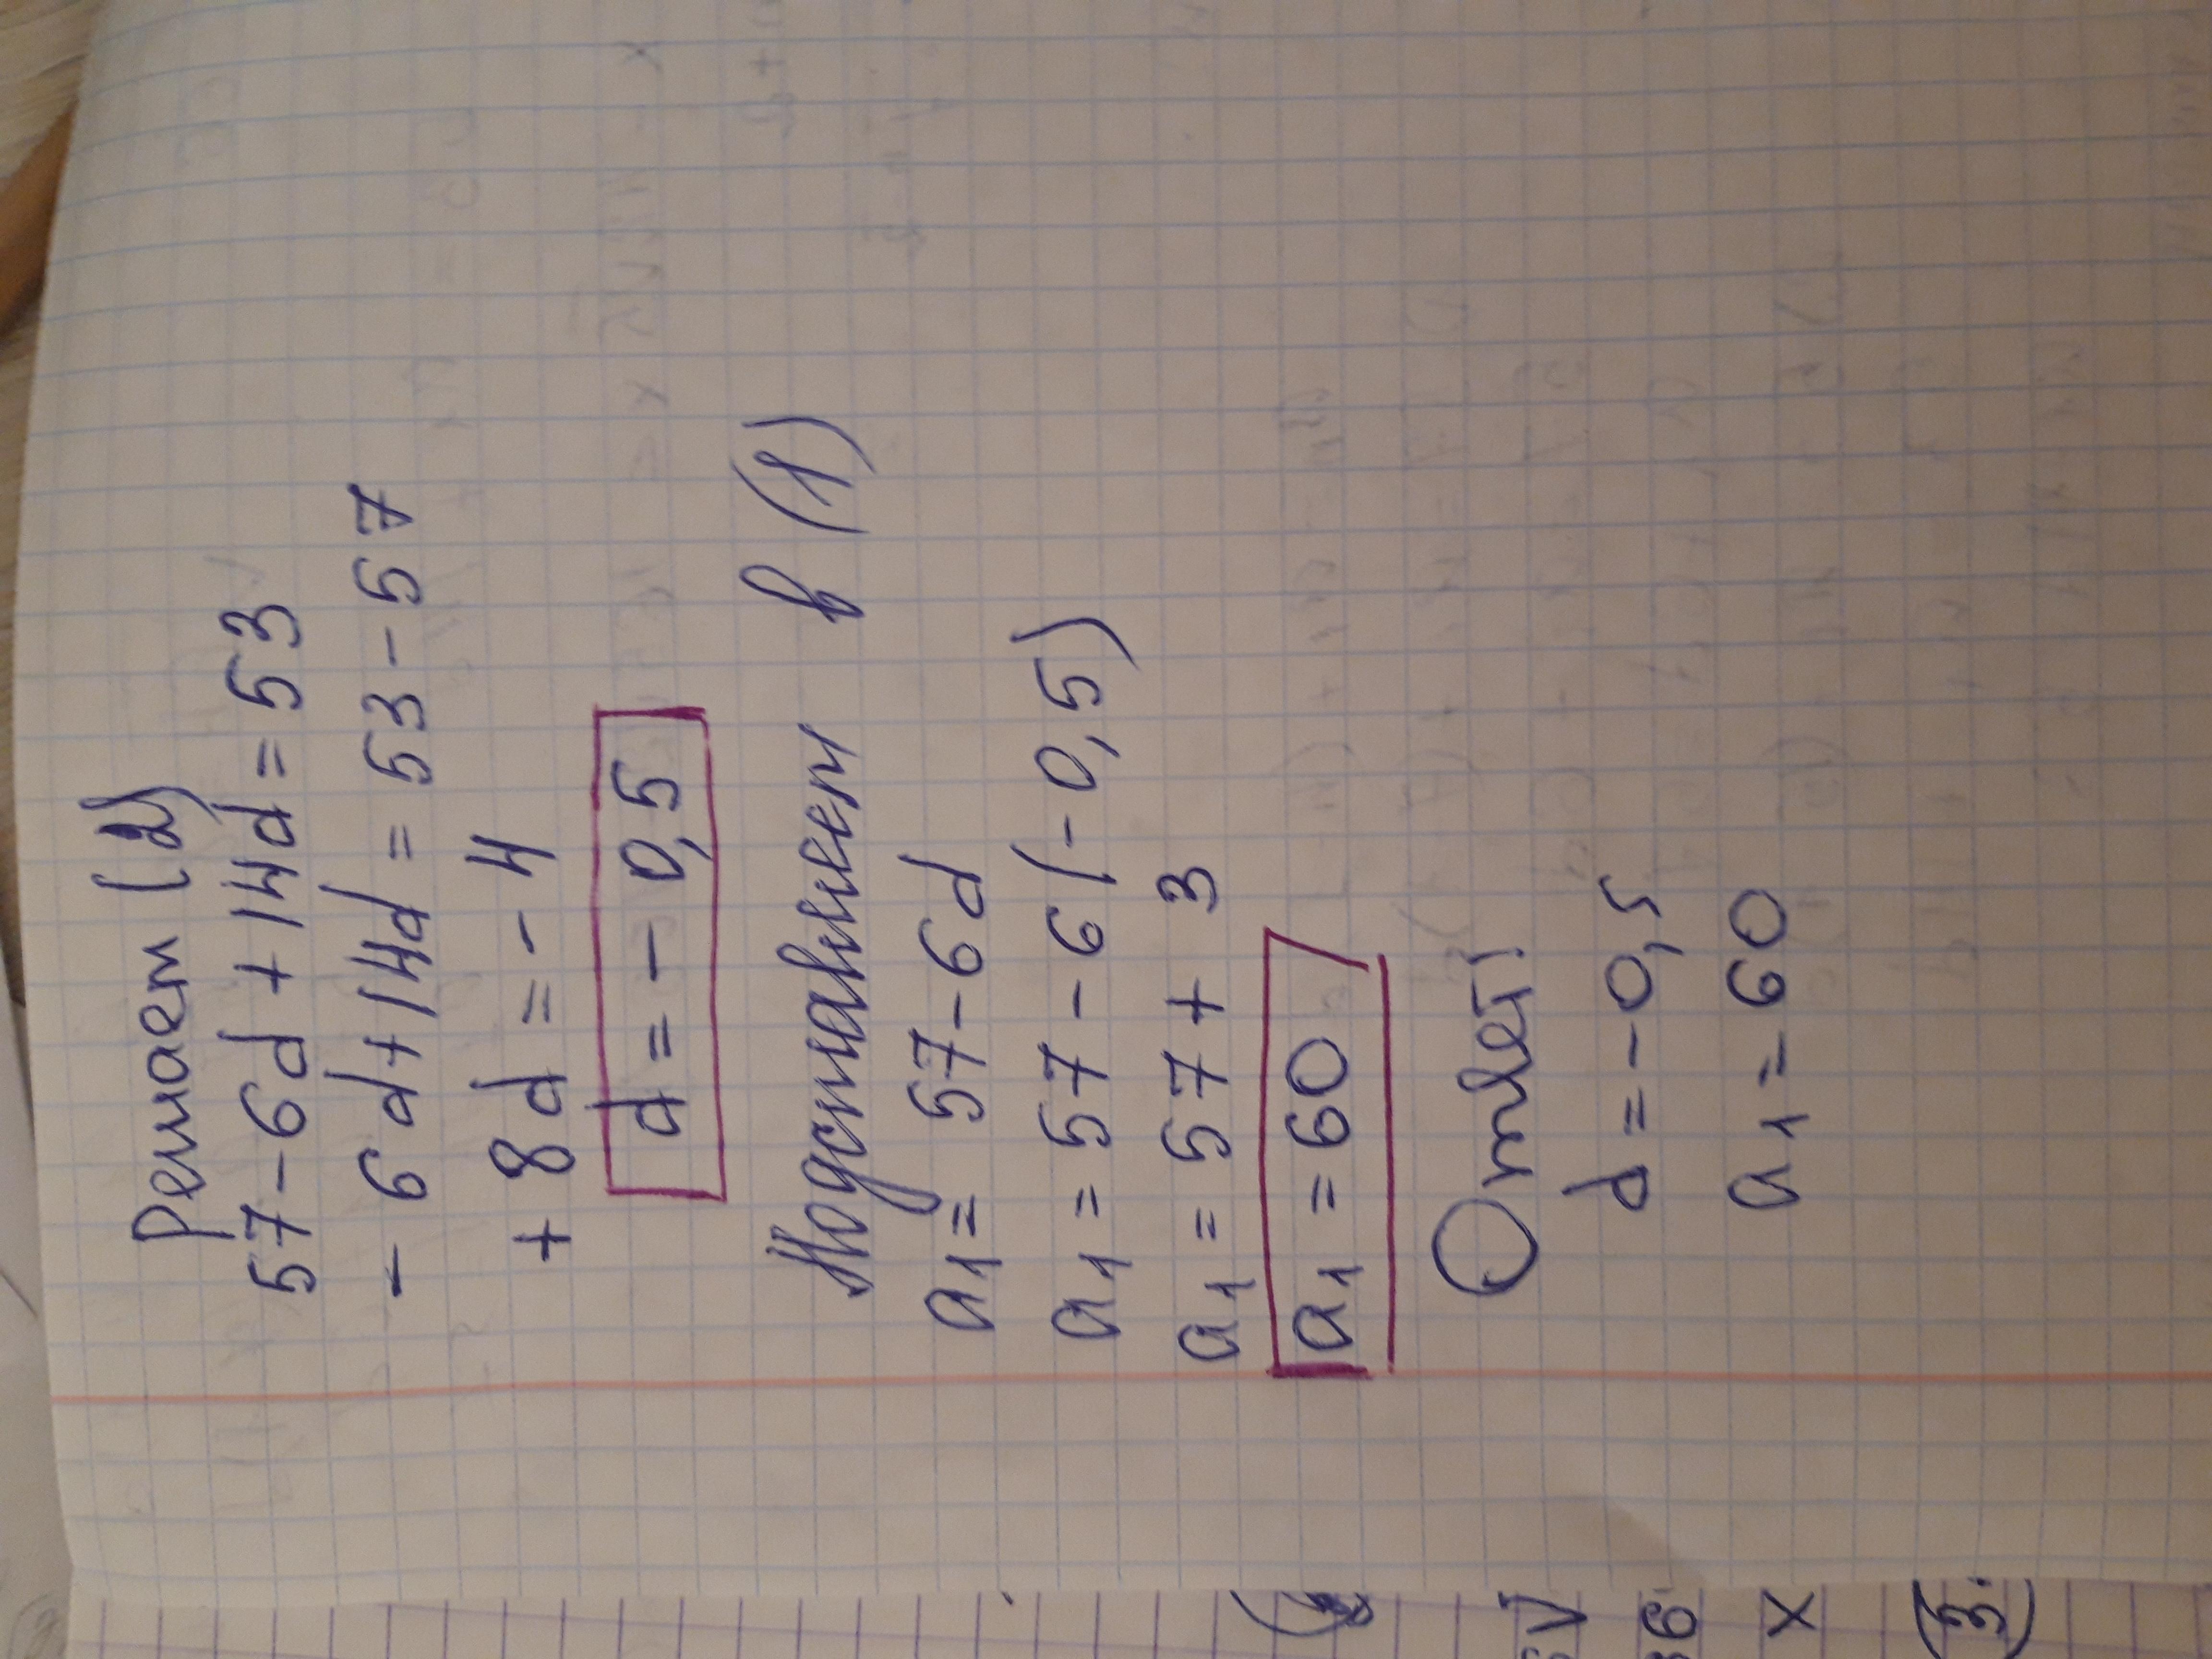 Решаем (2)
57-6d+14d=53
-6d+14d=53-57
+8d=-4
d=-0,5
Подставляем в (1)
a1=57-6d
a1=57-6(-0,5)
a1=57+3
a1=60
Ответ:
d=-0,5
a1=60